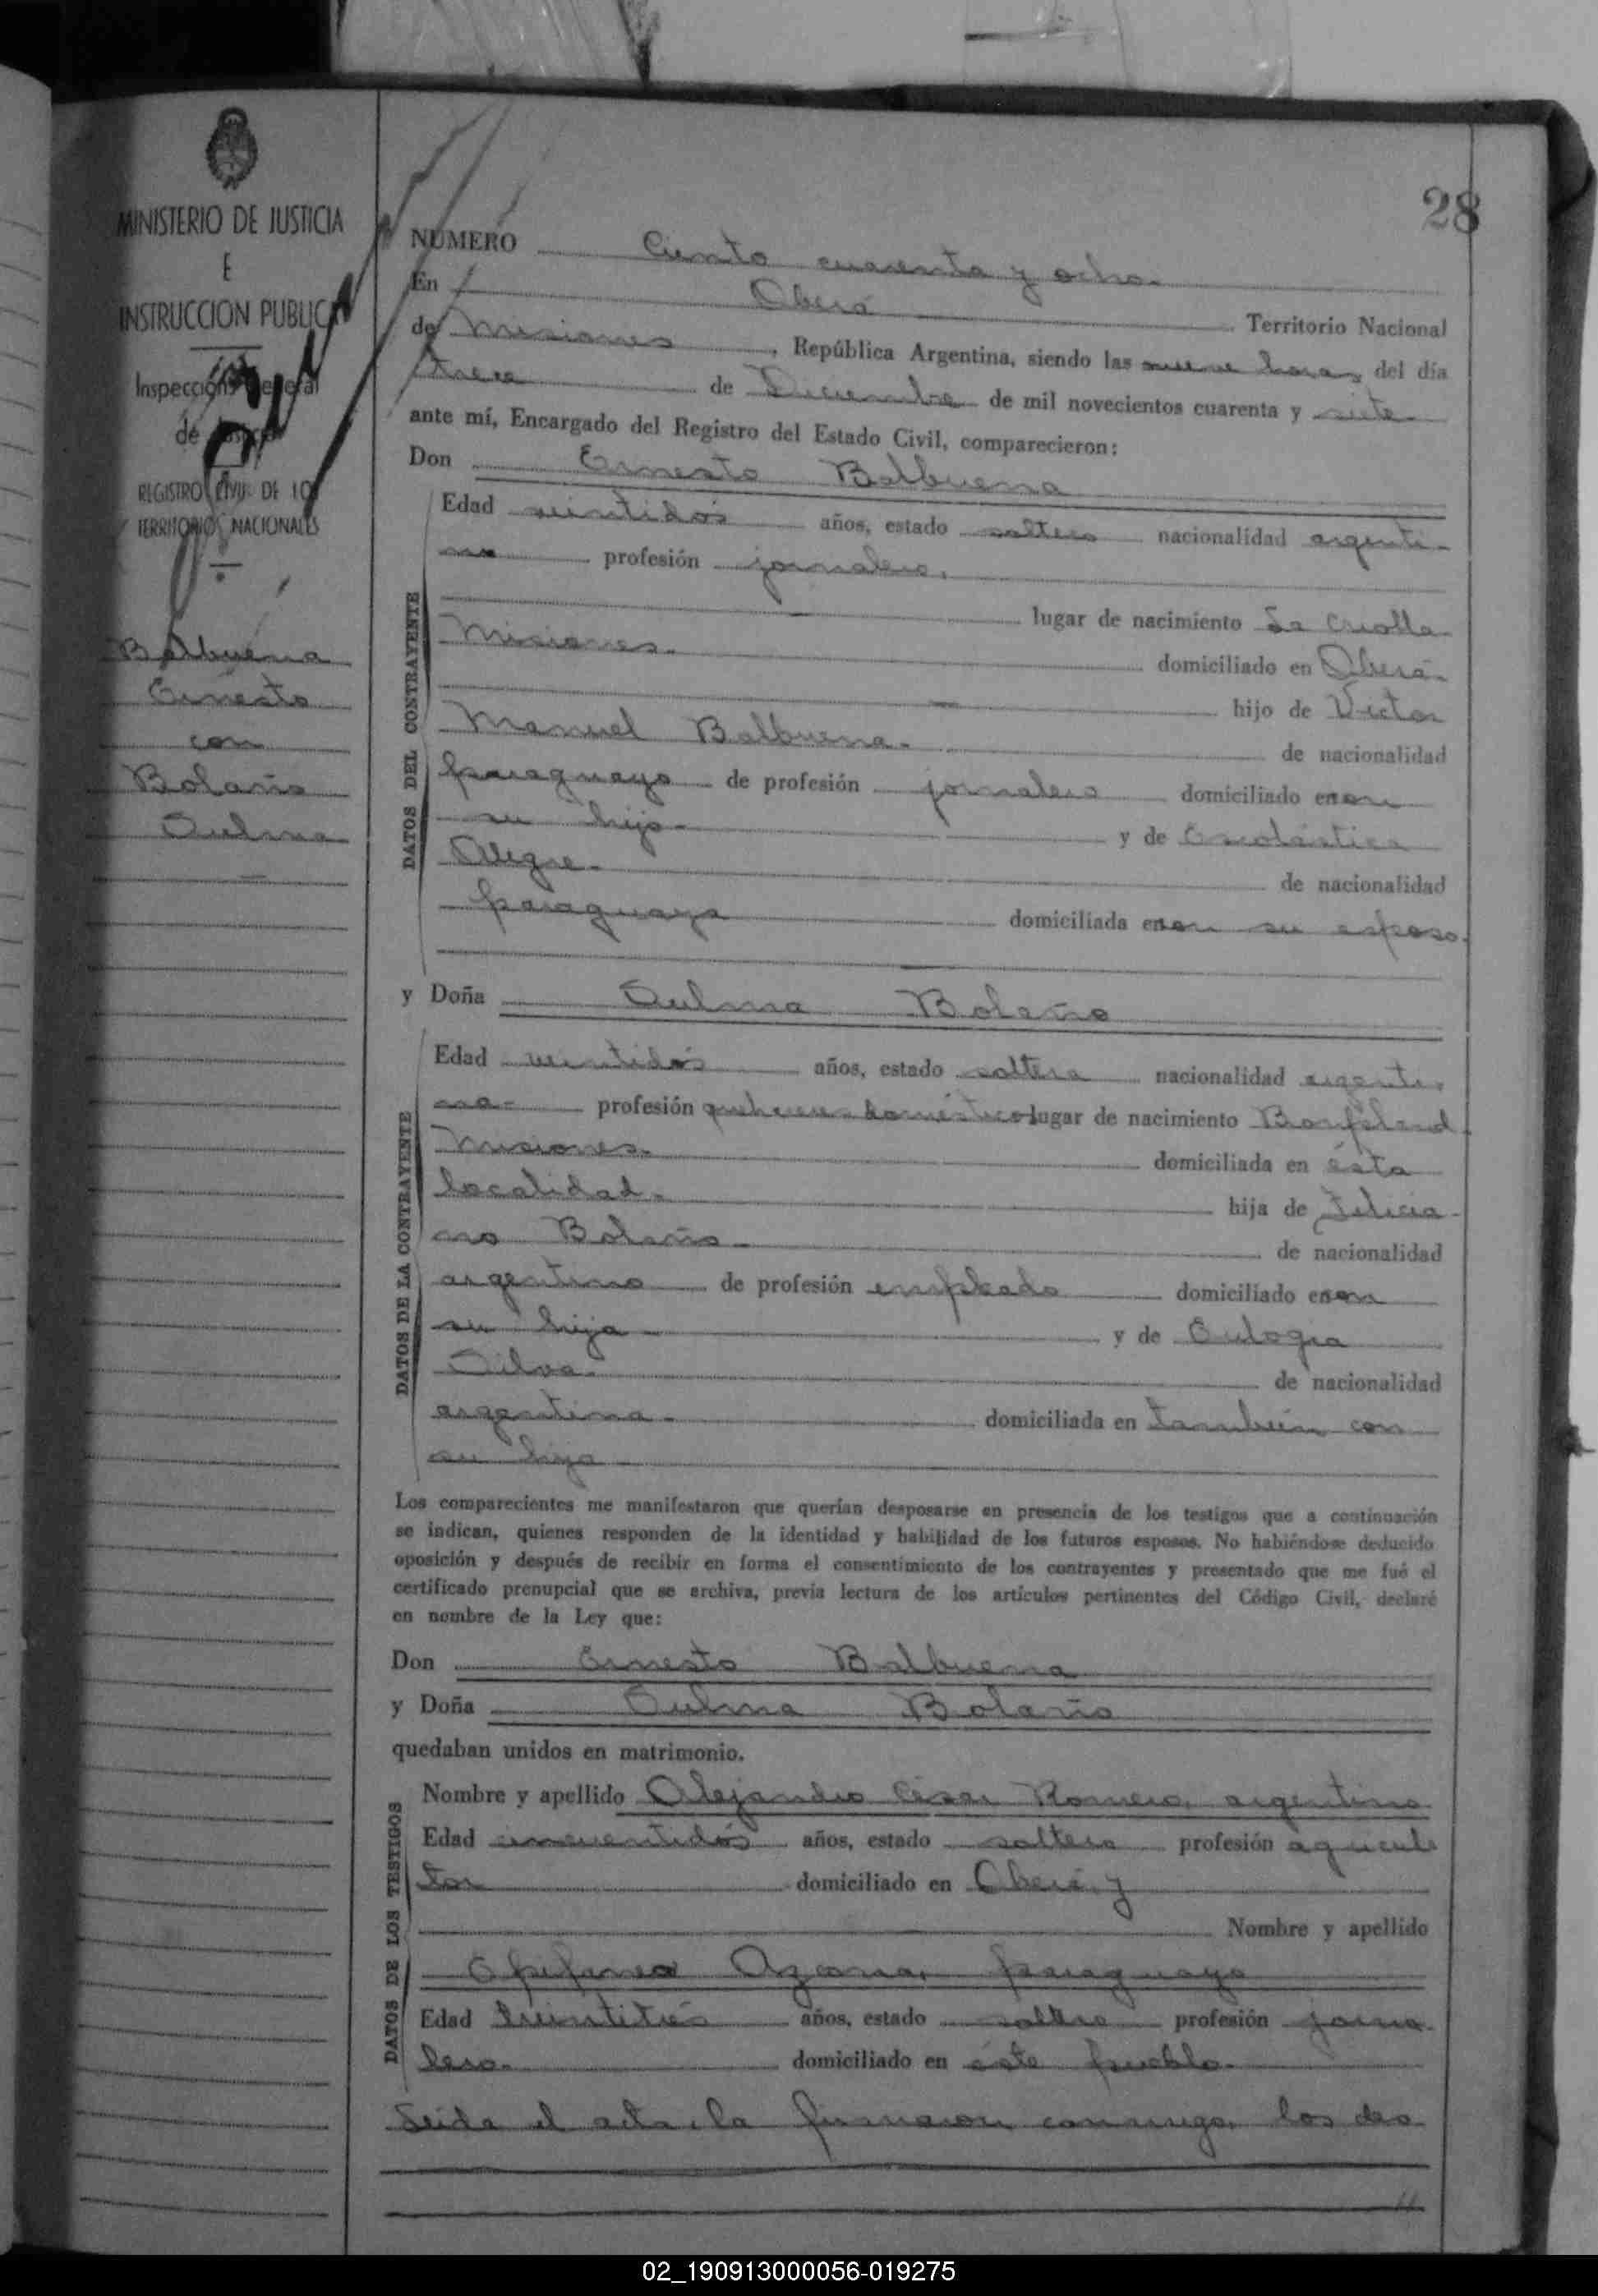 28
MINISTERIO DE JUSTICIA
E
INSTRUCCION PUBLICA
Inspección General
de Justicia
REGISTRO CIVIL DE LOS
TERRITORIOS NACIONALES
Balbuena
Ernesto
con
Bolaño
Sulma
NUMERO Ciento cuarenta y ocho.
En Oberá
Territorio Nacional
de Misiones, República Argentina, siendo las nueve horas del día
trece de Diciembre de mil novecientos cuarenta y siete
ante mí, Encargado del Registro del Estado Civil, comparecieron:
Don Ernesto Balbuena
DATOS DEL CONTRAYENTE
Edad veintidós años, estado soltero nacionalidad argenti-
no profesión jornalero.
lugar de nacimiento La Criolla
Misiones. domiciliado en Oberá.
hijo de Víctor
Manuel Balbuena. de nacionalidad
paraguayo de profesión jornalero domiciliado con
su hijo y de Escolástica
Alegre. de nacionalidad
paraguaya domiciliada con su esposo.
y Doña Sulma Bolaño
DATOS DE LA CONTRAYENTE
Edad veintidós años, estado soltera nacionalidad argenti-
na- profesión quehaceres domésticos lugar de nacimiento Bonpland
Misiones. domiciliada en ésta
localidad. hija de Felicia-
no Bolaño. de nacionalidad
argentino de profesión empleado domiciliado con
su hija y de Eulogia
Silva. de nacionalidad
argentina. domiciliada en también con
su hija
Los comparecientes me manifestaron que querían desposarse en presencia de los testigos que a continuación
se indican, quienes responden de la identidad y habilidad de los futuros esposos. No habiéndose deducido
oposición y después de recibir en forma el consentimiento de los contrayentes y presentado que me fué el
certificado prenupcial que se archiva, previa lectura de los artículos pertinentes del Código Civil, declaré
en nombre de la Ley que:
Don Ernesto Balbuena
y Doña Sulma Bolaño
quedaban unidos en matrimonio.
DATOS DE LOS TESTIGOS
Nombre y apellido Alejandro César Romero, argentino
Edad cincuentidós años, estado soltero profesión agricul
tor domiciliado en Oberá y
Nombre y apellido
Epifanio Azcona, paraguayo
Edad treintitrés años, estado soltero profesión jorna
lero. domiciliado en éste pueblo.
Leída el acta, la firmaron conmigo, los des
02_190913000056-019275